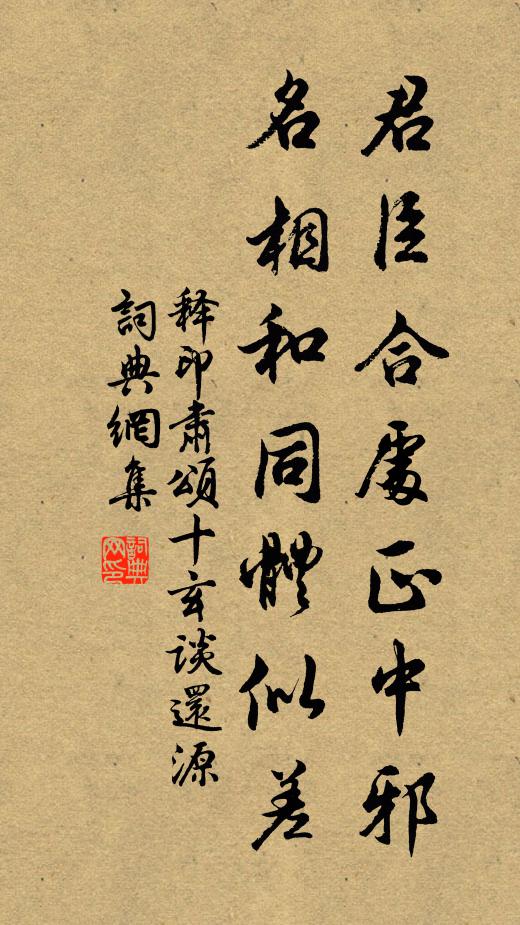 君臣合處正中邪
名相和同體似差
释印肅頌十玄談還源
詞典網集
詞典网印